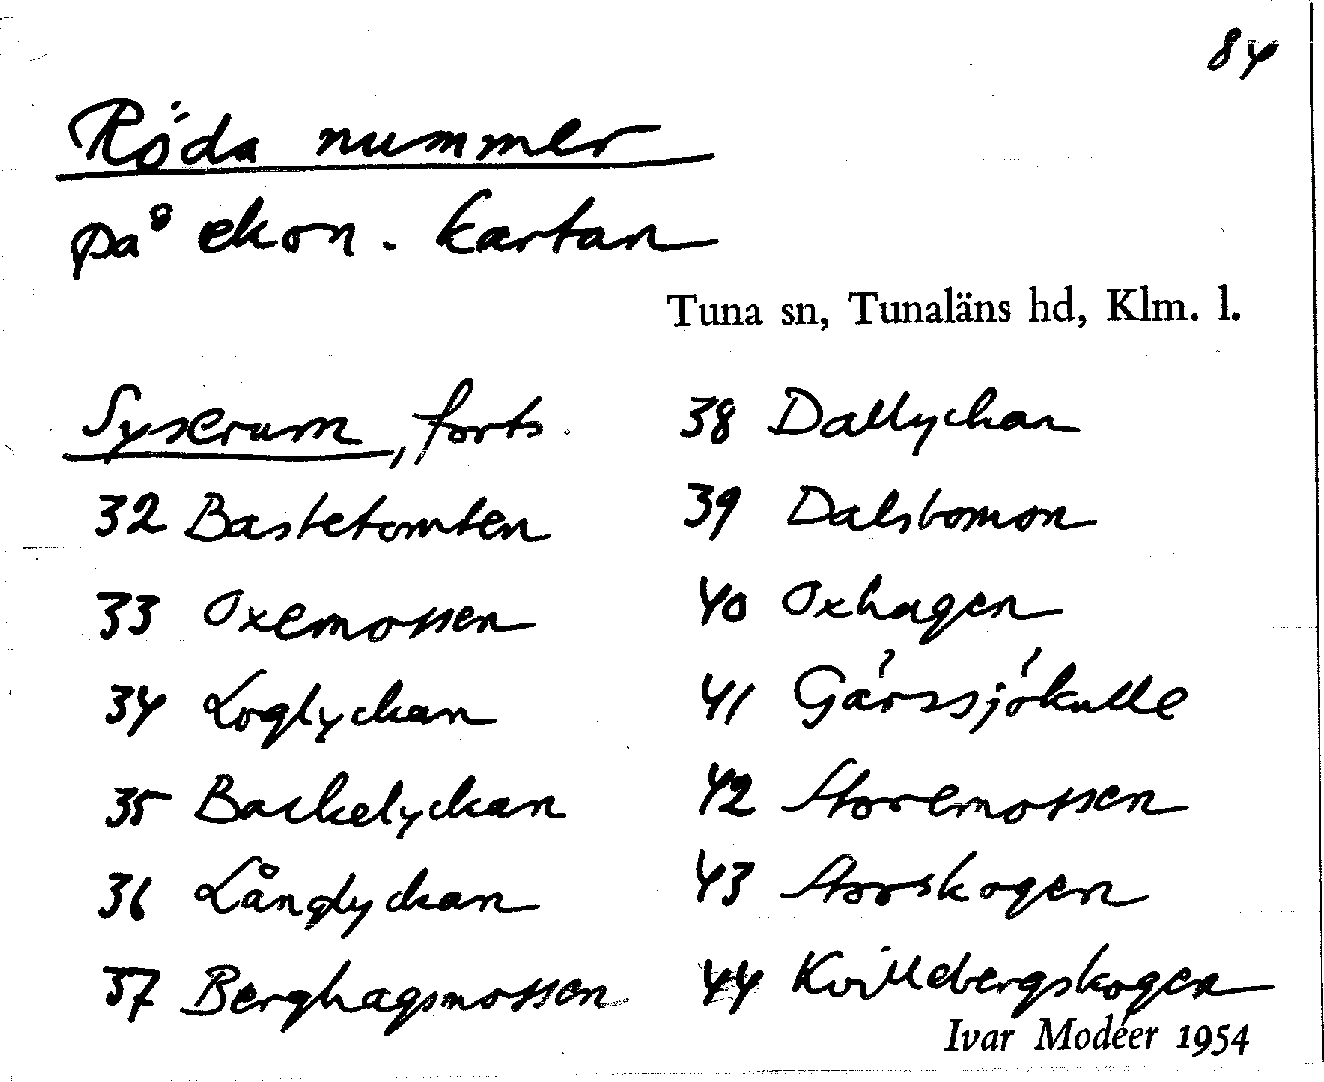 84
Röda nummer
på ekon. kartan
Tuna sn, Tunaläns hd, Klm. l.
Syserum, forts
32 Bastetomten
33 Oxemossen
34 Loglyckan
35 Backelyckan
36 Långlyckan
37 Berghagsmossen
38 Dallyckan
39 Dalsbomon
40 Oxhagen
41 Gårssjökulle
42 Storemossen
43 Storskogen
44 Kvillebergskogen
Ivar Modéer 1954